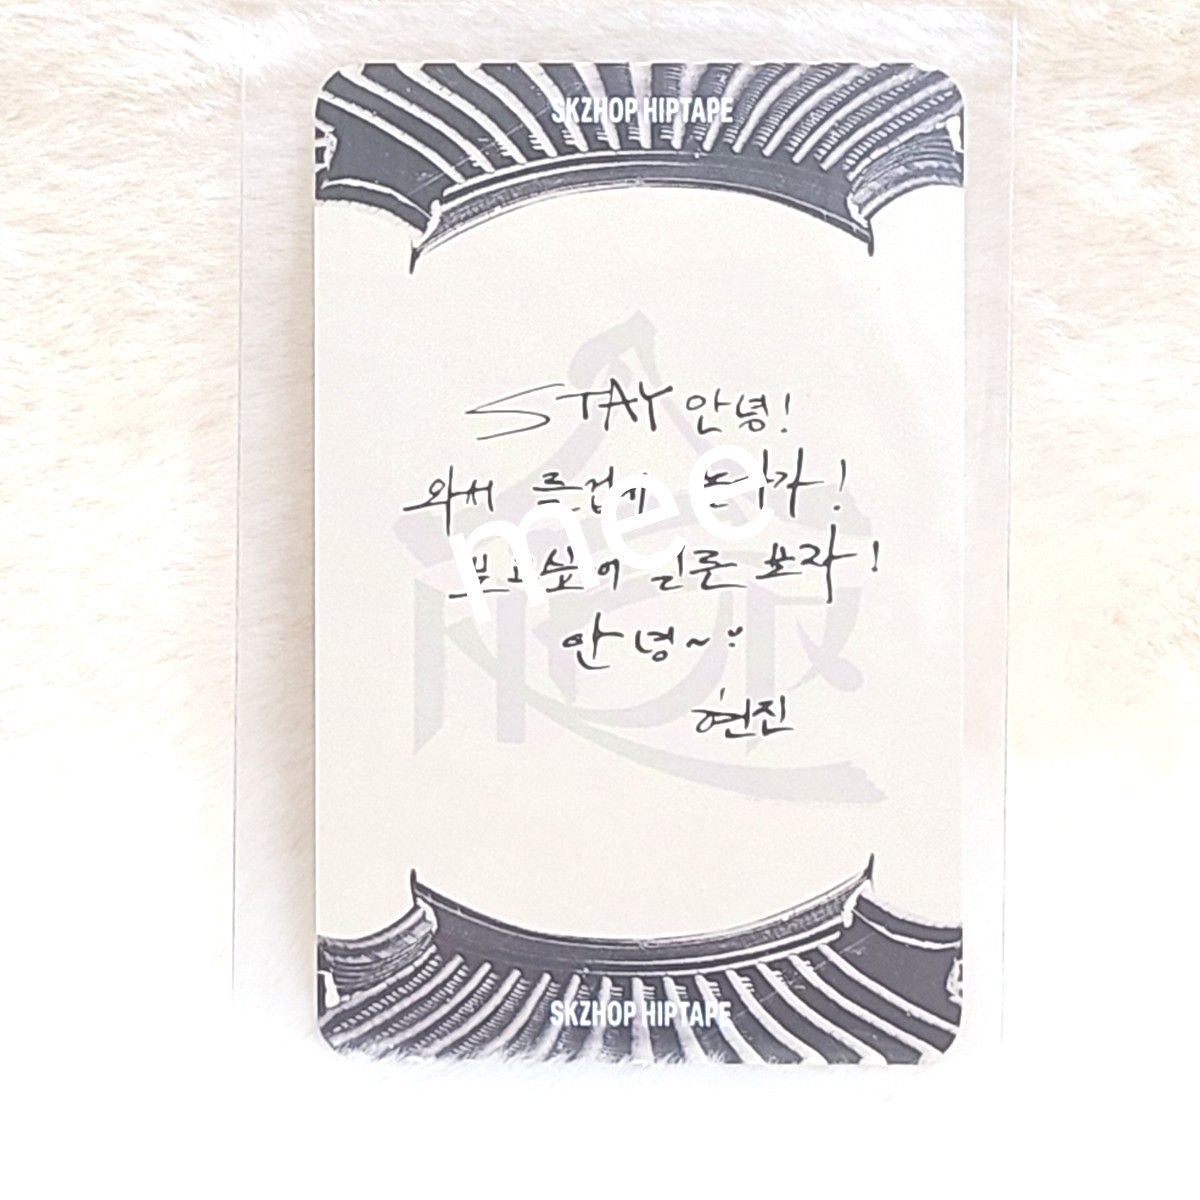 SKZHOP HIPTAPE
STAY 안녕!
와서 즐겁게 놀다가!
보고싶어 얼른 보자!
안녕~
현진
mee
SKZHOP HIPTAPE